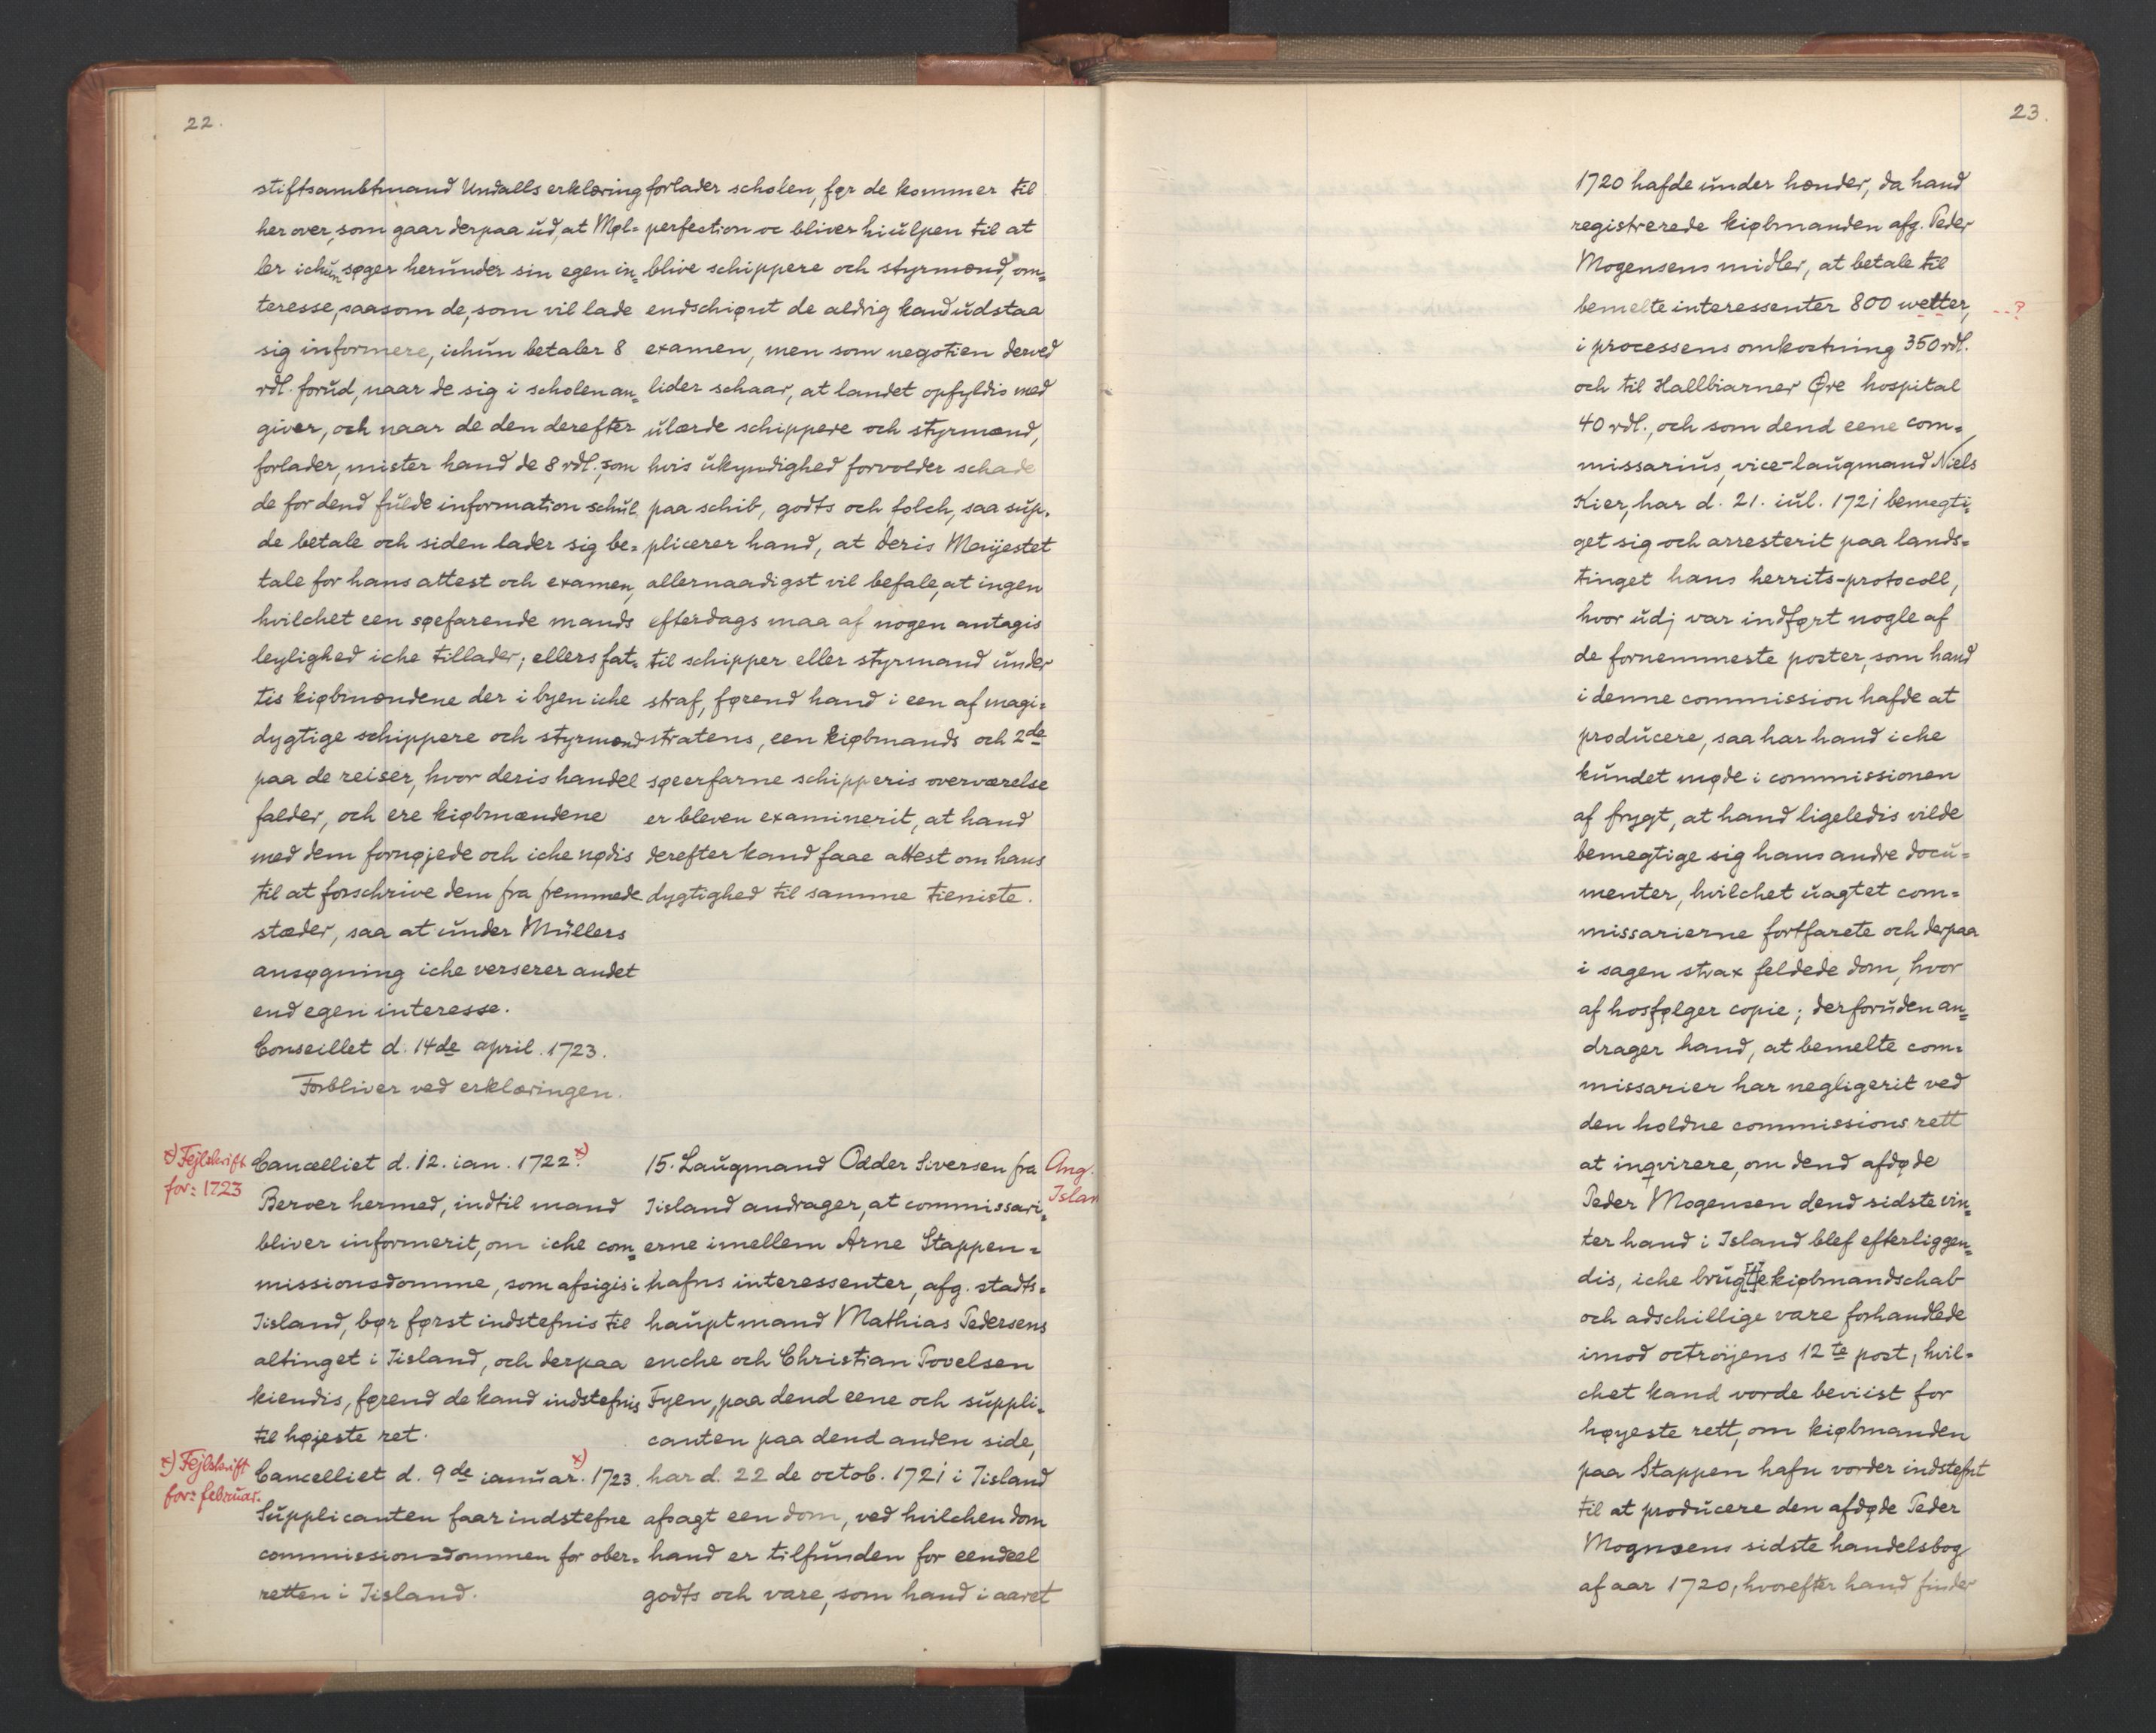 22.
stiftsambtmand Undalls erklæring
her over, som gaar derpaa ud, at Møl=
ler ichun søger herunder sin egen in=
teresse, saasom de, som vil lade
sig informere, ichun betaler 8
rdl. forud, naar de sig i scholen an=
giver, och naar de den derefter
forlader, mister hand de 8 rdl., som
de for dend fulde information schul
de betale och siden lader sig be=
tale for hans attest och examen,
hvilchet een søefarende mands
leylighed iche tillader; ellers fat=
tis kiøbmændene der i byen iche
dygtige schippere och styrmænd
paa de reiser, hvor deris handel
falder, och ere kiøbmændene
med dem fornøjede och iche nødis
til at forschrive dem fra fremmede
stæder, saa at under Müllers
ansøgning iche verserer andet
end egen interesse.
Conseillet d. 14de april. 1723.
Forbliver ved erklæringen.
forlader scholen, før de kommer til
perfection oc bliver hiulpen til at
blive schippere och styrmænd, om=
endschiønt de aldrig kand udstaa
examen, men som negotien derved
lider schaar, at landet opfyldis med
ulærde schippere och styrmænd,
hvis ukyndighed forvolder schade
paa schib, godts och folch, saa sup=
plicerer hand, at deris Mayestet
allernaadigst vil befale, at ingen
efterdags maa af nogen antagis
til schipper eller styrmand under
straf, førend hand i een af magi=
stratens, een kiøbmands och 2de
søeerfarne schipperis overværelse
er bleven examinerit, at hand
derefter kand faae attest om hans
dygtighed til samme tieniste.
x) Fejlskrift
for: 1723
Cancelliet d. 12. ian. 1722. x)
Beroer hermed, indtil mand
bliver informerit, om iche com=
missionsdomme, som afsigis i
Iisland, bør først indstefnis til
altinget i Iisland, och derpaa
kiendis, førend de kand indstefnis
til højeste ret.
x) Fejlskrift
for: februar.
Cancelliet d. 9de ianuar. x) 1723.
Supplicanten faar indstefne
commissionsdommen for ober=
retten i Iisland.
15. Laugmand Odder Siversen fra
Iisland andrager, at commissari=
erne imellem Arne Stappen=
hafns interessenter, afg. stadts=
hauptmand Mathias Pedersens
enche och Christian Povelsen
Fyen, paa dend eene och suppli=
canten paa dend anden side,
har d. 22 de octob. 1721 i Iisland
afsagt een dom, ved hvilchen dom
hand er tilfunden for eendeel
godts och vare, som hand i aaret
Ang.
Islan
23.
1720 hafde under hænder, da hand
registrerede kiøbmanden afg. Peder
Mogensens midler, at betale til
bemelte interessenter 800 wetter, --?
i processens omkostning 350 rdl.
och til Hallbiarner Øre hospital
40 rdl., och som dend eene com=
missarius, vice-laugmand Niels
Kier, har d. 21. iul. 1721 bemegti=
get sig och arresterit paa lands=
tinget hans herrits-protocoll,
hvor udj var indført nogle af
de fornemmeste poster, som hand
i denne commission hafde at
producere, saa har hand iche
kundet møde i commissionen
af frygt, at hand ligeledis vilde
bemegtige sig hans andre docu=
menter, hvilchet uagtet com=
missarierne fortfarete och derpaa
i sagen strax feldede dom, hvor
af hosfølger copie; derforuden an=
drager hand, at bemelte com=
missarier har negligerit ved
den holdne commissions rett
at inqvirere, om dend afdøde
Peder Mogensen dend sidste vin=
ter hand i Island blef efterliggen=
dis, iche brug[t]e kiøbmandschab
och adschillige vare forhandlede
imod octroijens 12te post, hvil=
chet kand vorde beviist for
høyeste rett, om kiøbmanden
paa Stappen hafn vorder indstefnt
til at producere den afdøde Peder
Mognsens sidste handelsbog
af aar 1720, hvorefter hand finder